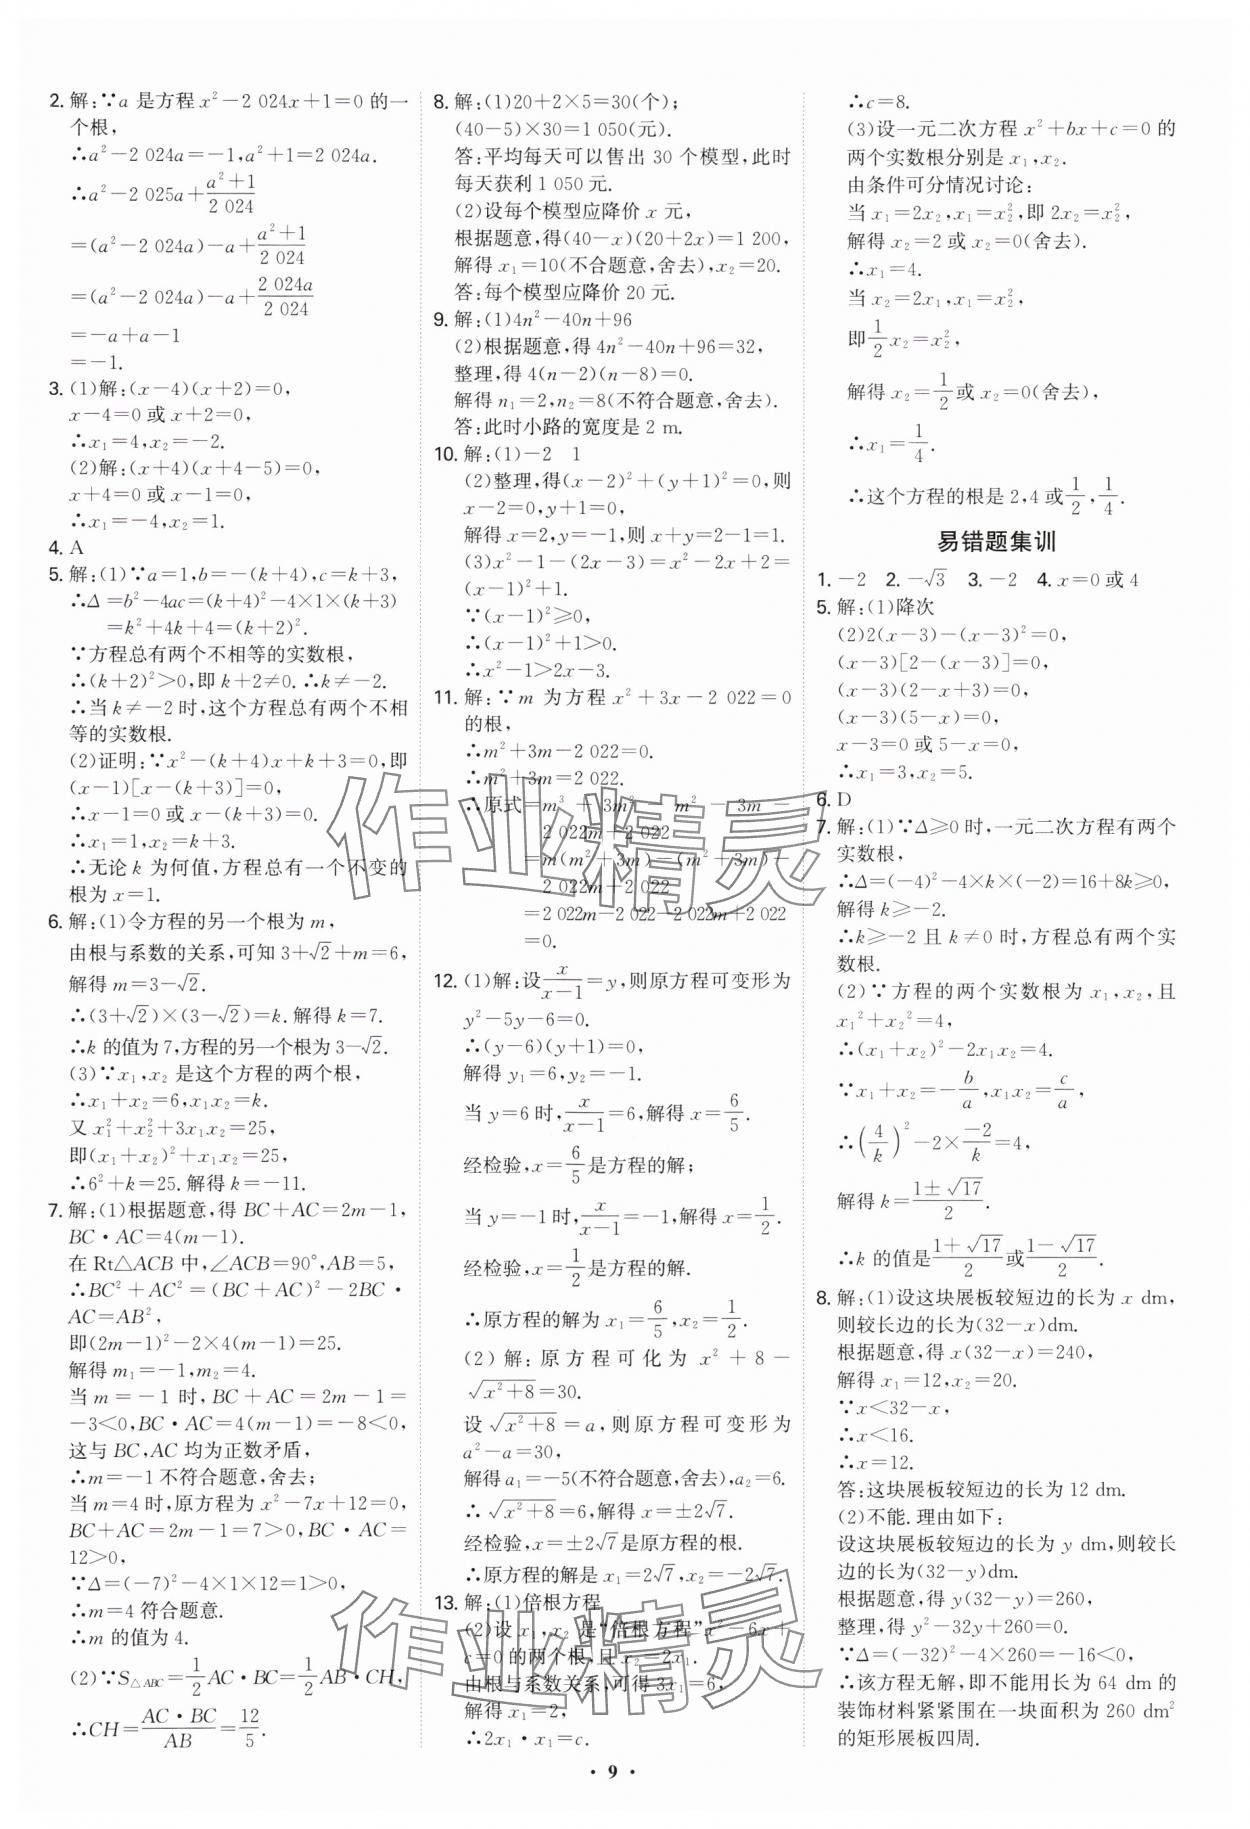 2. 解:∵a 是方程 x²－2 024x＋1＝0 的一
个根,
∴a²－2 024a＝－1,a²＋1＝2 024a.
∴a²－2 025a＋(a²＋1)/(2 024)
＝(a²－2 024a)－a＋(a²＋1)/(2 024)
＝(a²－2 024a)－a＋(2 024a)/(2 024)
＝－a＋a－1
＝－1.
3. (1)解:(x－4)(x＋2)＝0,
x－4＝0 或 x＋2＝0,
∴x₁＝4,x₂＝－2.
(2)解:(x＋4)(x＋4－5)＝0,
x＋4＝0 或 x－1＝0,
∴x₁＝－4,x₂＝1.
4. A
5. 解:(1)∵a＝1,b＝－(k＋4),c＝k＋3,
∴Δ＝b²－4ac＝(k＋4)²－4×1×(k＋3)
＝k²＋4k＋4＝(k＋2)².
∵方程总有两个不相等的实数根,
∴(k＋2)²＞0,即 k＋2≠0. ∴k≠－2.
∴当 k≠－2 时,这个方程总有两个不相
等的实数根.
(2)证明:∵x²－(k＋4)x＋k＋3＝0,即
(x－1)[x－(k＋3)]＝0,
∴x－1＝0 或 x－(k＋3)＝0.
∴x₁＝1,x₂＝k＋3.
∴无论 k 为何值,方程总有一个不变的
根为 x＝1.
6. 解:(1)令方程的另一个根为 m,
由根与系数的关系,可知 3＋√2＋m＝6,
解得 m＝3－√2.
∴(3＋√2)×(3－√2)＝k. 解得 k＝7.
∴k 的值为 7,方程的另一个根为 3－√2.
(3)∵x₁,x₂ 是这个方程的两个根,
∴x₁＋x₂＝6,x₁x₂＝k.
又 x₁²＋x₂²＋3x₁x₂＝25,
即(x₁＋x₂)²＋x₁x₂＝25,
∴6²＋k＝25. 解得 k＝－11.
7. 解:(1)根据题意,得 BC＋AC＝2m－1,
BC·AC＝4(m－1).
在 Rt△ACB 中,∠ACB＝90°,AB＝5,
∴BC²＋AC²＝(BC＋AC)²－2BC·
AC＝AB²,
即(2m－1)²－2×4(m－1)＝25.
解得 m₁＝－1,m₂＝4.
当 m＝－1 时,BC＋AC＝2m－1＝
－3＜0,BC·AC＝4(m－1)＝－8＜0,
这与 BC,AC 均为正数矛盾,
∴m＝－1 不符合题意,舍去;
当 m＝4 时,原方程为 x²－7x＋12＝0,
BC＋AC＝2m－1＝7＞0,BC·AC＝
12＞0,
∵Δ＝(－7)²－4×1×12＝1＞0,
∴m＝4 符合题意.
∴m 的值为 4.
(2)∵S△ABC＝1/2 AC·BC＝1/2 AB·CH,
∴CH＝(AC·BC)/AB＝12/5.
8. 解:(1)20＋2×5＝30(个);
(40－5)×30＝1 050(元).
答:平均每天可以售出 30 个模型,此时
每天获利 1 050 元.
(2)设每个模型应降价 x 元,
根据题意,得(40－x)(20＋2x)＝1 200,
解得 x₁＝10(不合题意,舍去),x₂＝20.
答:每个模型应降价 20 元.
9. 解:(1)4n²－40n＋96
(2)根据题意,得 4n²－40n＋96＝32,
整理,得 4(n－2)(n－8)＝0.
解得 n₁＝2,n₂＝8(不符合题意,舍去).
答:此时小路的宽度是 2 m.
10. 解:(1)－2 1
(2)整理,得(x－2)²＋(y＋1)²＝0,则
x－2＝0,y＋1＝0,
解得 x＝2,y＝－1,则 x＋y＝2－1＝1.
(3)x²－1－(2x－3)＝x²－2x＋2＝
(x－1)²＋1.
∵(x－1)²≥0,
∴(x－1)²＋1＞0.
∴x²－1＞2x－3.
11. 解:∵m 为方程 x²＋3x－2 022＝0
的根,
∴m²＋3m－2 022＝0.
∴m²＋3m＝2 022.
∴原式＝m³＋3m²－m²－3m－
2 022m＋2 022
＝m(m²＋3m)－(m²＋3m)－
2 022m＋2 022
＝2 022m－2 022－2 022m＋2 022
＝0.
12. (1)解:设 x/(x－1)＝y,则原方程可变形为
y²－5y－6＝0.
∴(y－6)(y＋1)＝0,
解得 y₁＝6,y₂＝－1.
当 y＝6 时,x/(x－1)＝6,解得 x＝6/5.
经检验,x＝6/5 是方程的解;
当 y＝－1 时,x/(x－1)＝－1,解得 x＝1/2.
经检验,x＝1/2 是方程的解.
∴原方程的解为 x₁＝6/5,x₂＝1/2.
(2)解:原方程可化为 x²＋8－
√(x²＋8)＝30.
设 √(x²＋8)＝a,则原方程可变形为
a²－a＝30,
解得 a₁＝－5(不符合题意,舍去),a₂＝6.
∴√(x²＋8)＝6,解得 x＝±2√7.
经检验,x＝±2√7是原方程的根.
∴原方程的解是 x₁＝2√7,x₂＝－2√7.
13. 解:(1)倍根方程
(2)设 x₁,x₂ 是“倍根方程”x²－6x＋
c＝0 的两个根,且 x₂＝2x₁.
由根与系数关系,可得 3x₁＝6,
解得 x₁＝2,
∴2x₁·x₁＝c.
∴c＝8.
(3)设一元二次方程 x²＋bx＋c＝0 的
两个实数根分别是 x₁,x₂.
由条件可分情况讨论:
当 x₁＝2x₂,x₁＝x₂²,即 2x₂＝x₂²,
解得 x₂＝2 或 x₂＝0(舍去).
∴x₁＝4.
当 x₂＝2x₁,x₁＝x₂²,
即 1/2 x₂＝x₂²,
解得 x₂＝1/2 或 x₂＝0(舍去),
∴x₁＝1/4.
∴这个方程的根是 2,4 或 1/2,1/4.
易错题集训
1. －2 2. －√3 3. －2 4. x＝0 或 4
5. 解:(1)降次
(2)2(x－3)－(x－3)²＝0,
(x－3)[2－(x－3)]＝0,
(x－3)(2－x＋3)＝0,
(x－3)(5－x)＝0,
x－3＝0 或 5－x＝0,
∴x₁＝3,x₂＝5.
6. D
7. 解:(1)∵Δ≥0 时,一元二次方程有两个
实数根,
∴Δ＝(－4)²－4×k×(－2)＝16＋8k≥0,
解得 k≥－2.
∴k≥－2 且 k≠0 时,方程总有两个实
数根.
(2)∵方程的两个实数根为 x₁,x₂,且
x₁²＋x₂²＝4,
∴(x₁＋x₂)²－2x₁x₂＝4.
∵x₁＋x₂＝－b/a,x₁x₂＝c/a,
∴(4/k)²－2×(－2)/k＝4,
解得 k＝(1±√17)/2.
∴k 的值是 (1＋√17)/2 或 (1－√17)/2.
8. 解:(1)设这块展板较短边的长为 x dm,
则较长边的长为(32－x)dm.
根据题意,得 x(32－x)＝240,
解得 x₁＝12,x₂＝20.
∵x＜32－x,
∴x＜16.
∴x＝12.
答:这块展板较短边的长为 12 dm.
(2)不能. 理由如下:
设这块展板较短边的长为 y dm,则较长
边的长为(32－y)dm.
根据题意,得 y(32－y)＝260,
整理,得 y²－32y＋260＝0.
∵Δ＝(－32)²－4×260＝－16＜0,
∴该方程无解,即不能用长为 64 dm 的
装饰材料紧紧围在一块面积为 260 dm²
的矩形展板四周.
· 9 ·
作业精灵
作业精灵